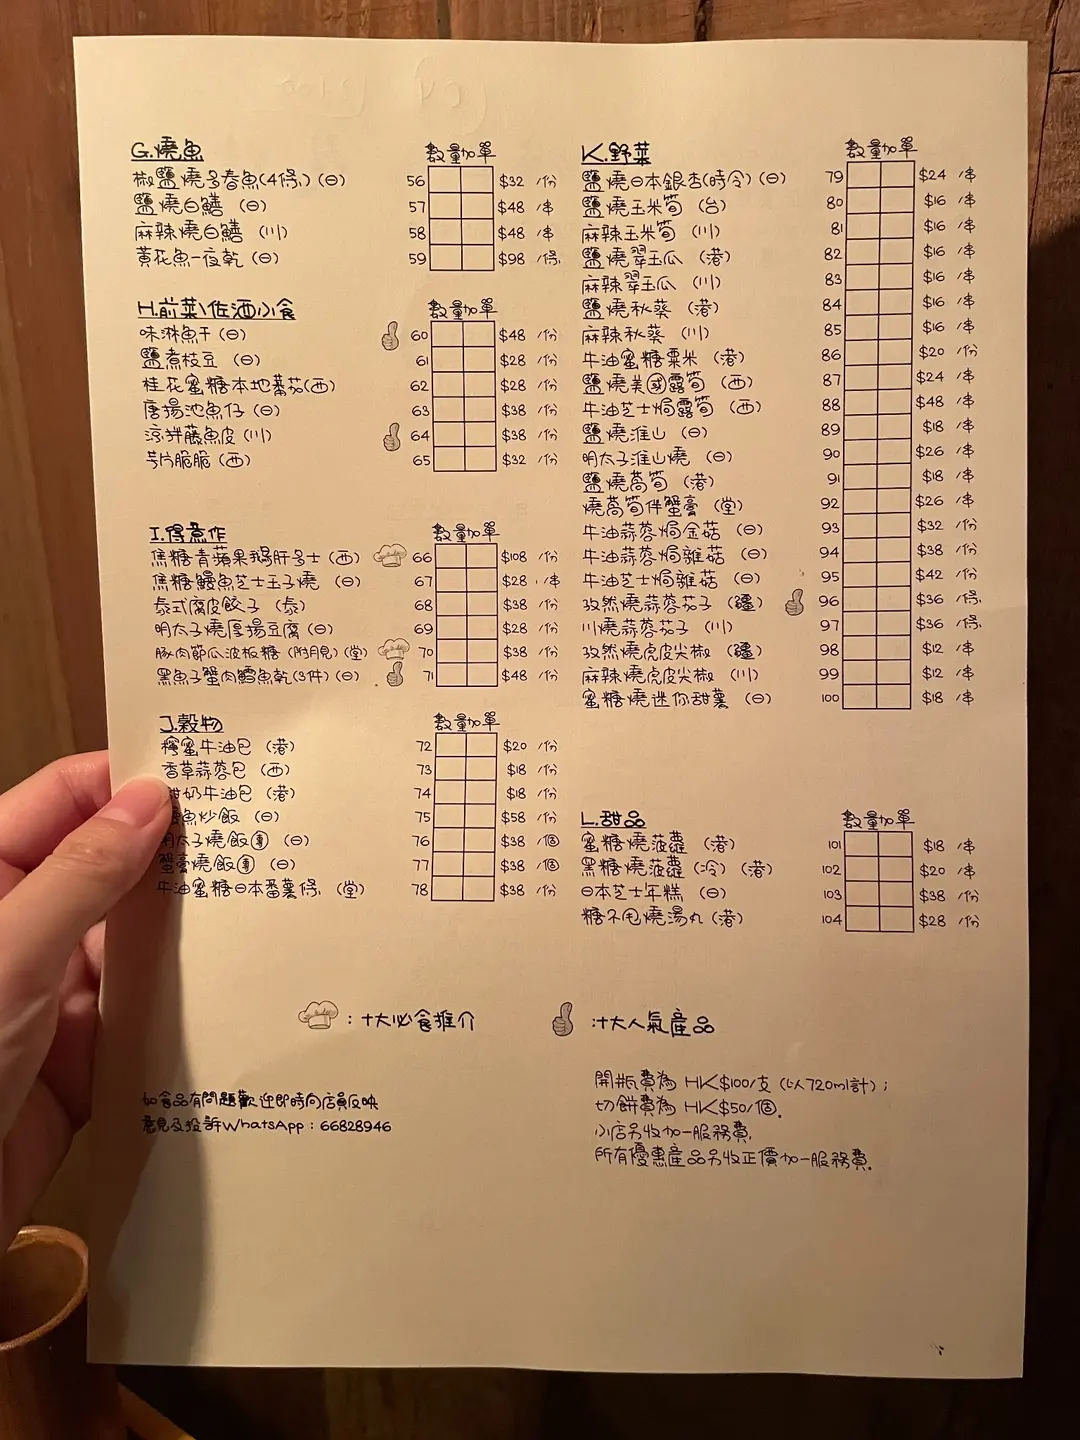 G.燒魚 數量加單
椒鹽燒多春魚(4條)(日) 56 $32 /份
鹽燒白鱔 (日) 57 $48 /串
麻辣燒白鱔 (川) 58 $48 /串
黃花魚一夜乾 (日) 59 $98 /條
H.前菜\佐酒小食 數量加單
味淋魚干 (日) 60 $48 /份
鹽煮枝豆 (日) 61 $28 /份
桂花蜜糖本地蕃茄(西) 62 $28 /份
唐揚池魚仔 (日) 63 $38 /份
涼拌藤魚皮 (川) 64 $38 /份
芳片脆脆 (西) 65 $32 /份
I.得意作 數量加單
焦糖青蘋果鵝肝多士 (西) 66 $108 /份
焦糖鰻魚芝士玉子燒 (日) 67 $28 /串
泰式腐皮餃子 (泰) 68 $38 /份
明太子燒厚揚豆腐 (日) 69 $28 /份
豚肉節瓜波板糖 (附月見) (堂) 70 $38 /份
黑魚子蟹肉鱈魚乾(3件) (日) 71 $48 /份
J.穀物 數量加單
檸蜜牛油包 (港) 72 $20 /份
香草蒜蓉包 (西) 73 $18 /份
甜奶牛油包 (港) 74 $18 /份
魚炒飯 (日) 75 $58 /份
明太子燒飯團 (日) 76 $38 /個
蟹膏燒飯團 (日) 77 $38 /個
牛油蜜糖日本番薯條 (堂) 78 $38 /份
K.野菜 數量加單
鹽燒日本銀杏(時令) (日) 79 $24 /串
鹽燒玉米筍 (台) 80 $16 /串
麻辣玉米筍 (川) 81 $16 /串
鹽燒翠玉瓜 (港) 82 $16 /串
麻辣翠玉瓜 (川) 83 $16 /串
鹽燒秋葵 (港) 84 $16 /串
麻辣秋葵 (川) 85 $16 /串
牛油蜜糖粟米 (港) 86 $20 /份
鹽燒美國露筍 (西) 87 $24 /串
牛油芝士焗露筍 (西) 88 $48 /串
鹽燒淮山 (日) 89 $18 /串
明太子淮山燒 (日) 90 $26 /串
鹽燒萵筍 (港) 91 $18 /串
燒萵筍伴蟹膏 (堂) 92 $26 /串
牛油蒜蓉焗金菇 (日) 93 $32 /份
牛油蒜蓉焗雜菇 (日) 94 $38 /份
牛油芝士焗雜菇 (日) 95 $42 /份
孜然燒蒜蓉茄子 (疆) 96 $36 /條
川燒蒜蓉茄子 (川) 97 $36 /條
孜然燒虎皮尖椒 (疆) 98 $12 /串
麻辣燒虎皮尖椒 (川) 99 $12 /串
蜜糖燒迷你甜薯 (日) 100 $18 /串
L.甜品 數量加單
蜜糖燒菠蘿 (港) 101 $18 /串
黑糖燒菠蘿 (冷) (港) 102 $20 /串
日本芝士年糕 (日) 103 $38 /份
糖不甩燒湯丸 (港) 104 $28 /份
:十大必食推介
:十大人氣產品
如食品有問題歡迎即時向店員反映
意見及投訴WhatsApp:66828946
開瓶費為 HK$100/支 (以720ml計);
切餅費為 HK$50/個.
小店另收加一服務費.
所有優惠產品另收正價加一服務費.